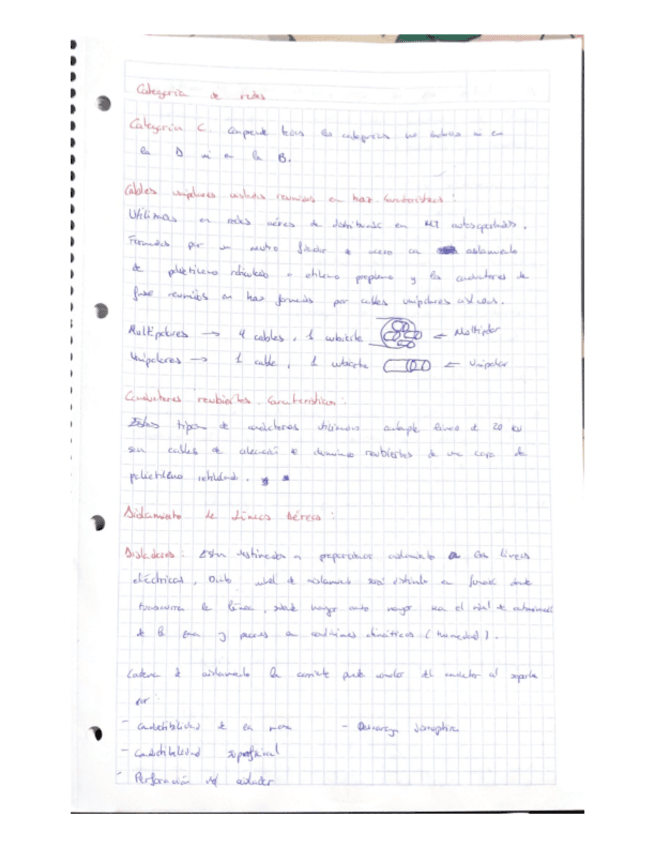 Categoría de redes
Categoria C. Comprende todas las categorias no incluidas ni en
la D ni en la B.
Cables unipolares aislados reunidos en haz. Características:
Utilizamos en redes aéreas de distribución en MT autosoportados.
Formados por un neutro fiador de acero con aislamiento
de polietileno reticulado o etileno propileno y los conductores de
fase reunidos en haz formados por cables unipolares aislados.
Multipolares → 4 cables, 1 cubierta ← Multipolar
Unipolares → 1 cable, 1 cubierta ← Unipolar
Conductores recubiertos. Características:
Estos tipos de conductores utilizamos ejemplo línea de 20 kV
son cables de aleación de aluminio recubiertos de una capa de
polietileno reticulado.
Aislamiento de Líneas Aéreas:
Aisladores: Están destinados a proporcionar aislamiento a las líneas
eléctricas, Dicho nivel de aislamiento será distinto en función donde
transcurra la línea, siendo mayor cuanto mayor sea el nivel de contaminación
de la zona y peores condiciones climáticas (humedad).
Cadena de aislamiento la corriente puede conducir del conductor al soporte
por:
- Conductibilidad de la masa - Descarga disruptiva
- Conductibilidad superficial
- Perforación del aislador